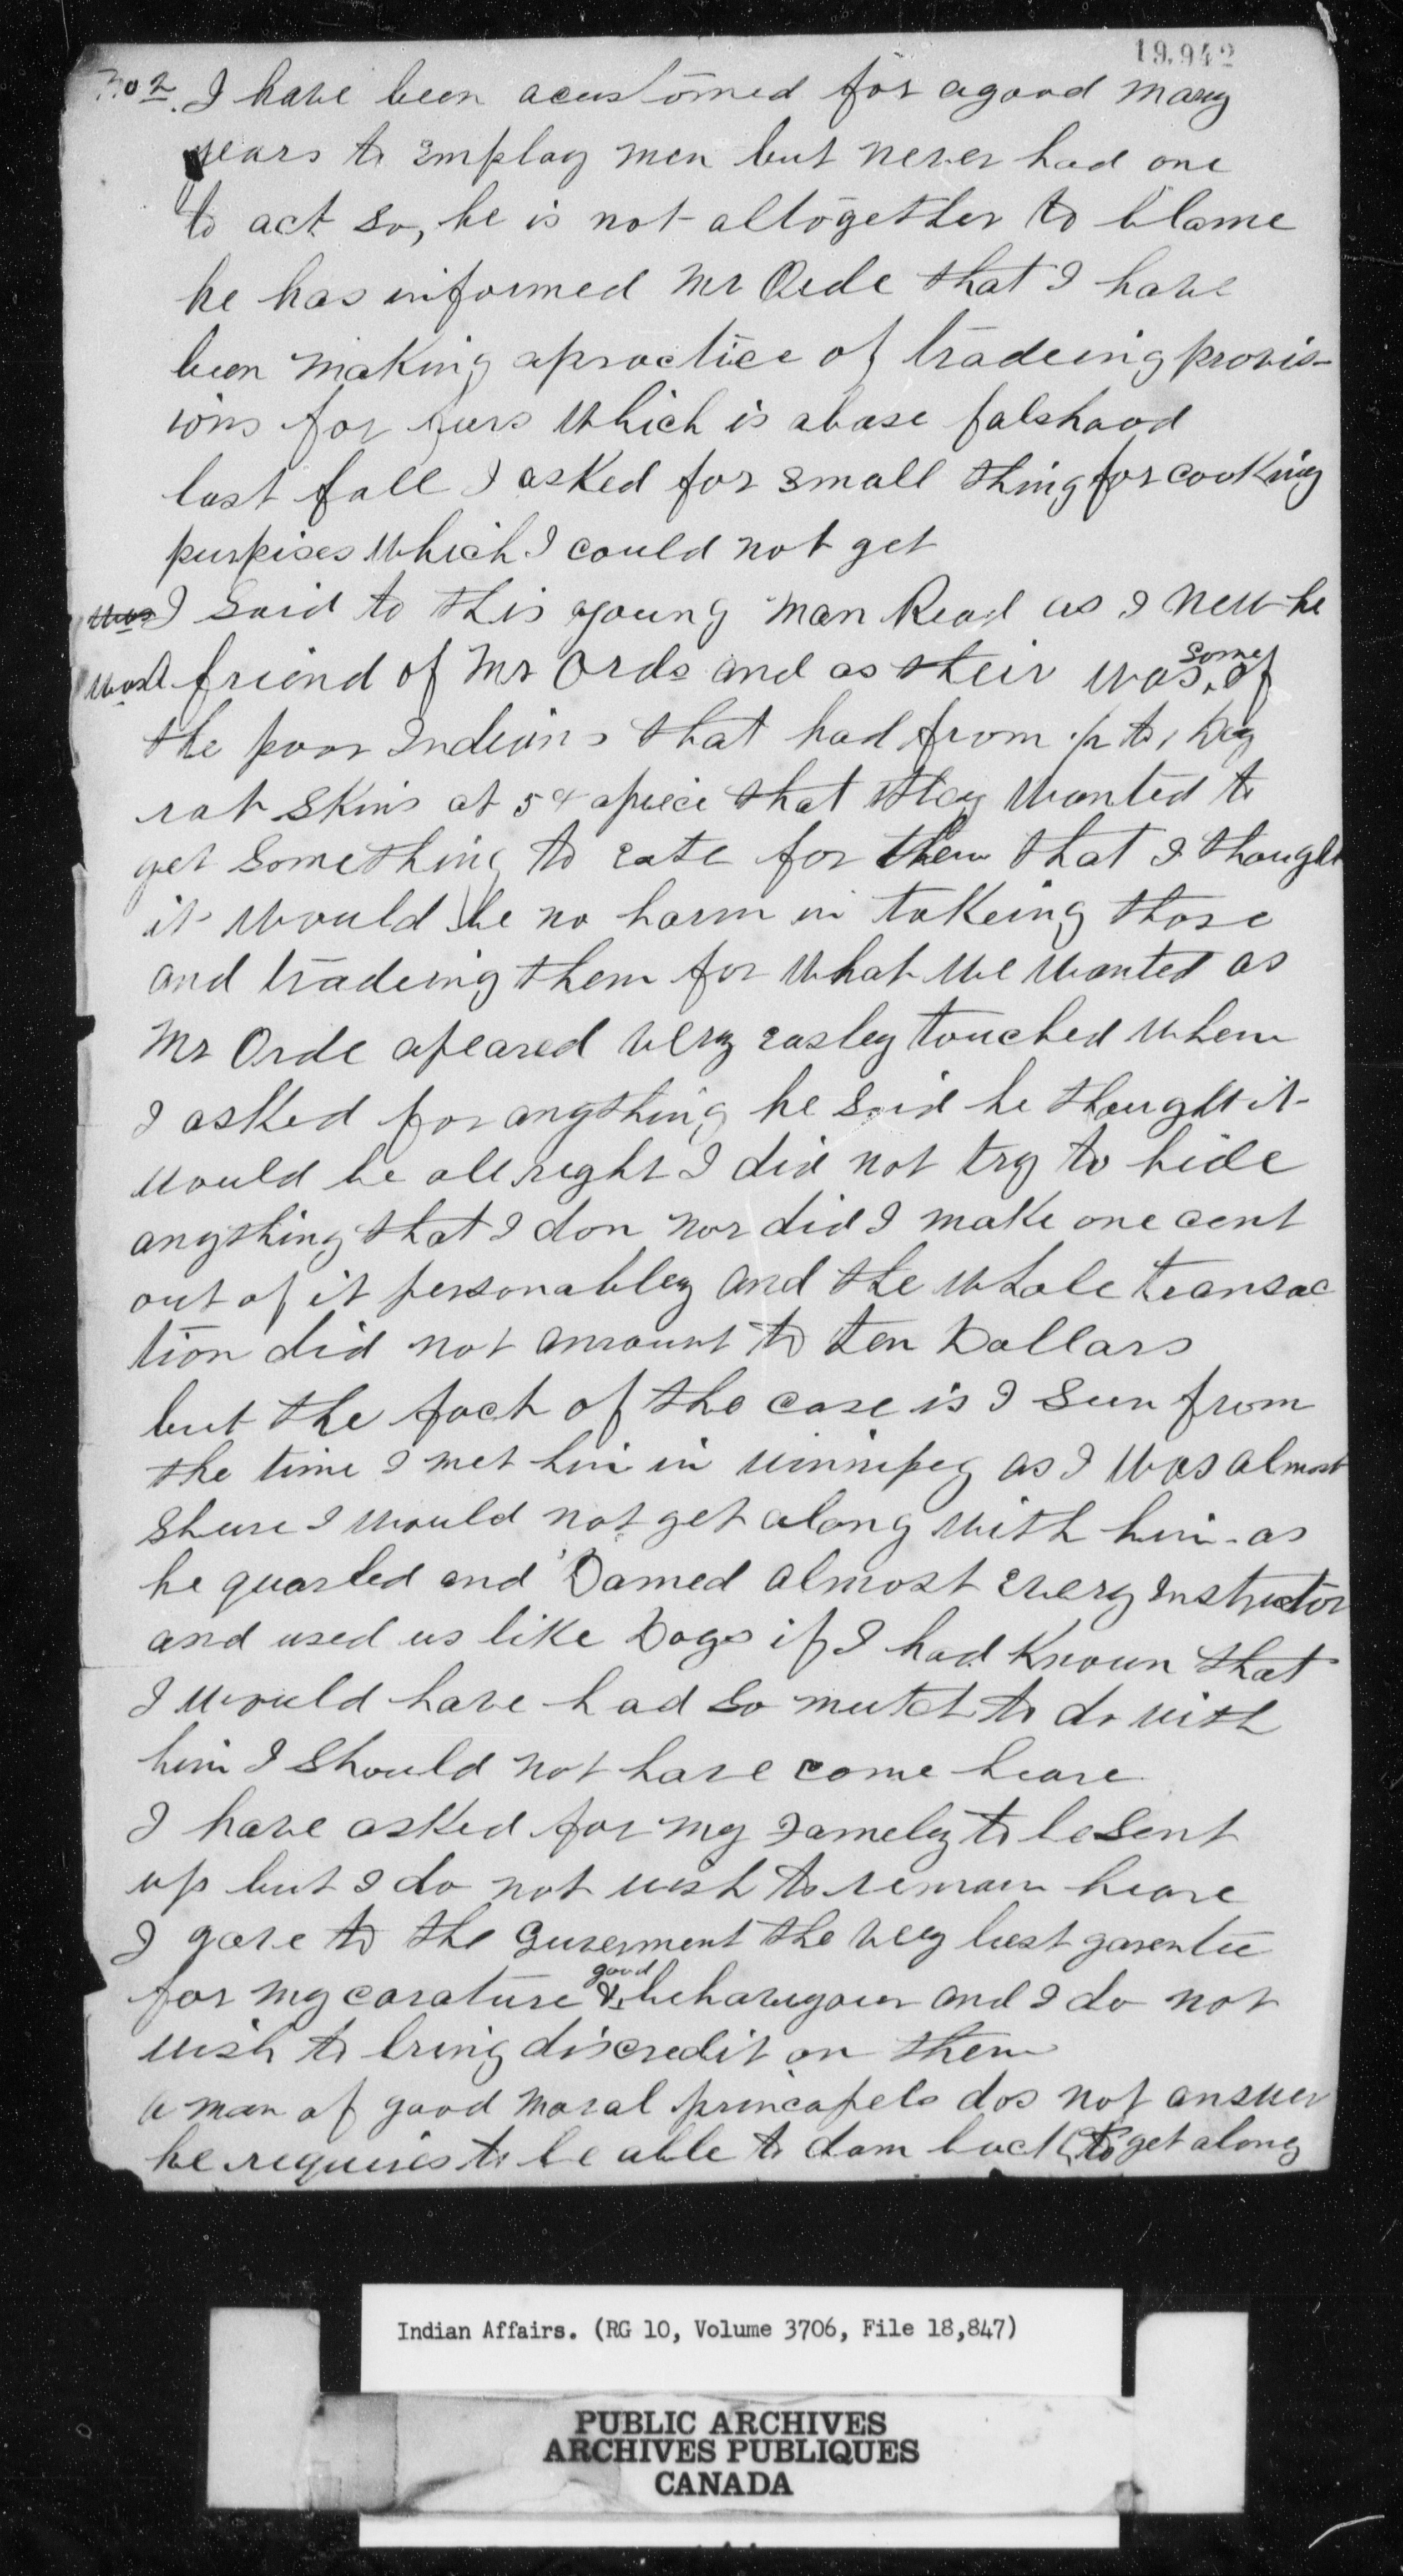 19,942
No 2. I have been acustomed for agood many
years to Employ men but never had one
to act so, he is not altogether to blame
he has informed Mr Orde that I have
been making apractice of tradeing provis-
ions for furs Which is abase falshood
last fall I asked for small thing for cooking
purpises Which I could not get
was I Said to this young man Read as I new he
was a friend of Mr Orde and as their was some of
the poor Indians that had from to
rat skins at 5¢ apeice that they Wanted to
get something to eate for them that I thought
it Would be no harm in takeing those
and tradeing them for What We Wanted as
Mr Orde apeared very easley touched When
I asked for anything he said he thought it
would be all right I did not try to hide
anything that I don nor did I make one cent
out of it personabley and the Whole transac
tion did not amount to ten Dollars
but the fact of the case is I seen from
the time I met him in winnipeg as I Was almost
shure I would not get along with him as
he quarled and Damed almost every Instructor
and used us like Dogs if I had Known that
I would have had so mutch to do with
him I should not have come heare
I have asked for my Famely to be sent
up but I do not wish to remain heare
I gave to the Guverment the very best garentee
for my carature & good behaveyour and I do not
wish to bring discredit on them
a man of good moral princapels dos not answer
he requires to be able to dam back to get along
Indian Affairs. (RG 10, Volume 3706, File 18,847)
PUBLIC ARCHIVES
ARCHIVES PUBLIQUES
CANADA